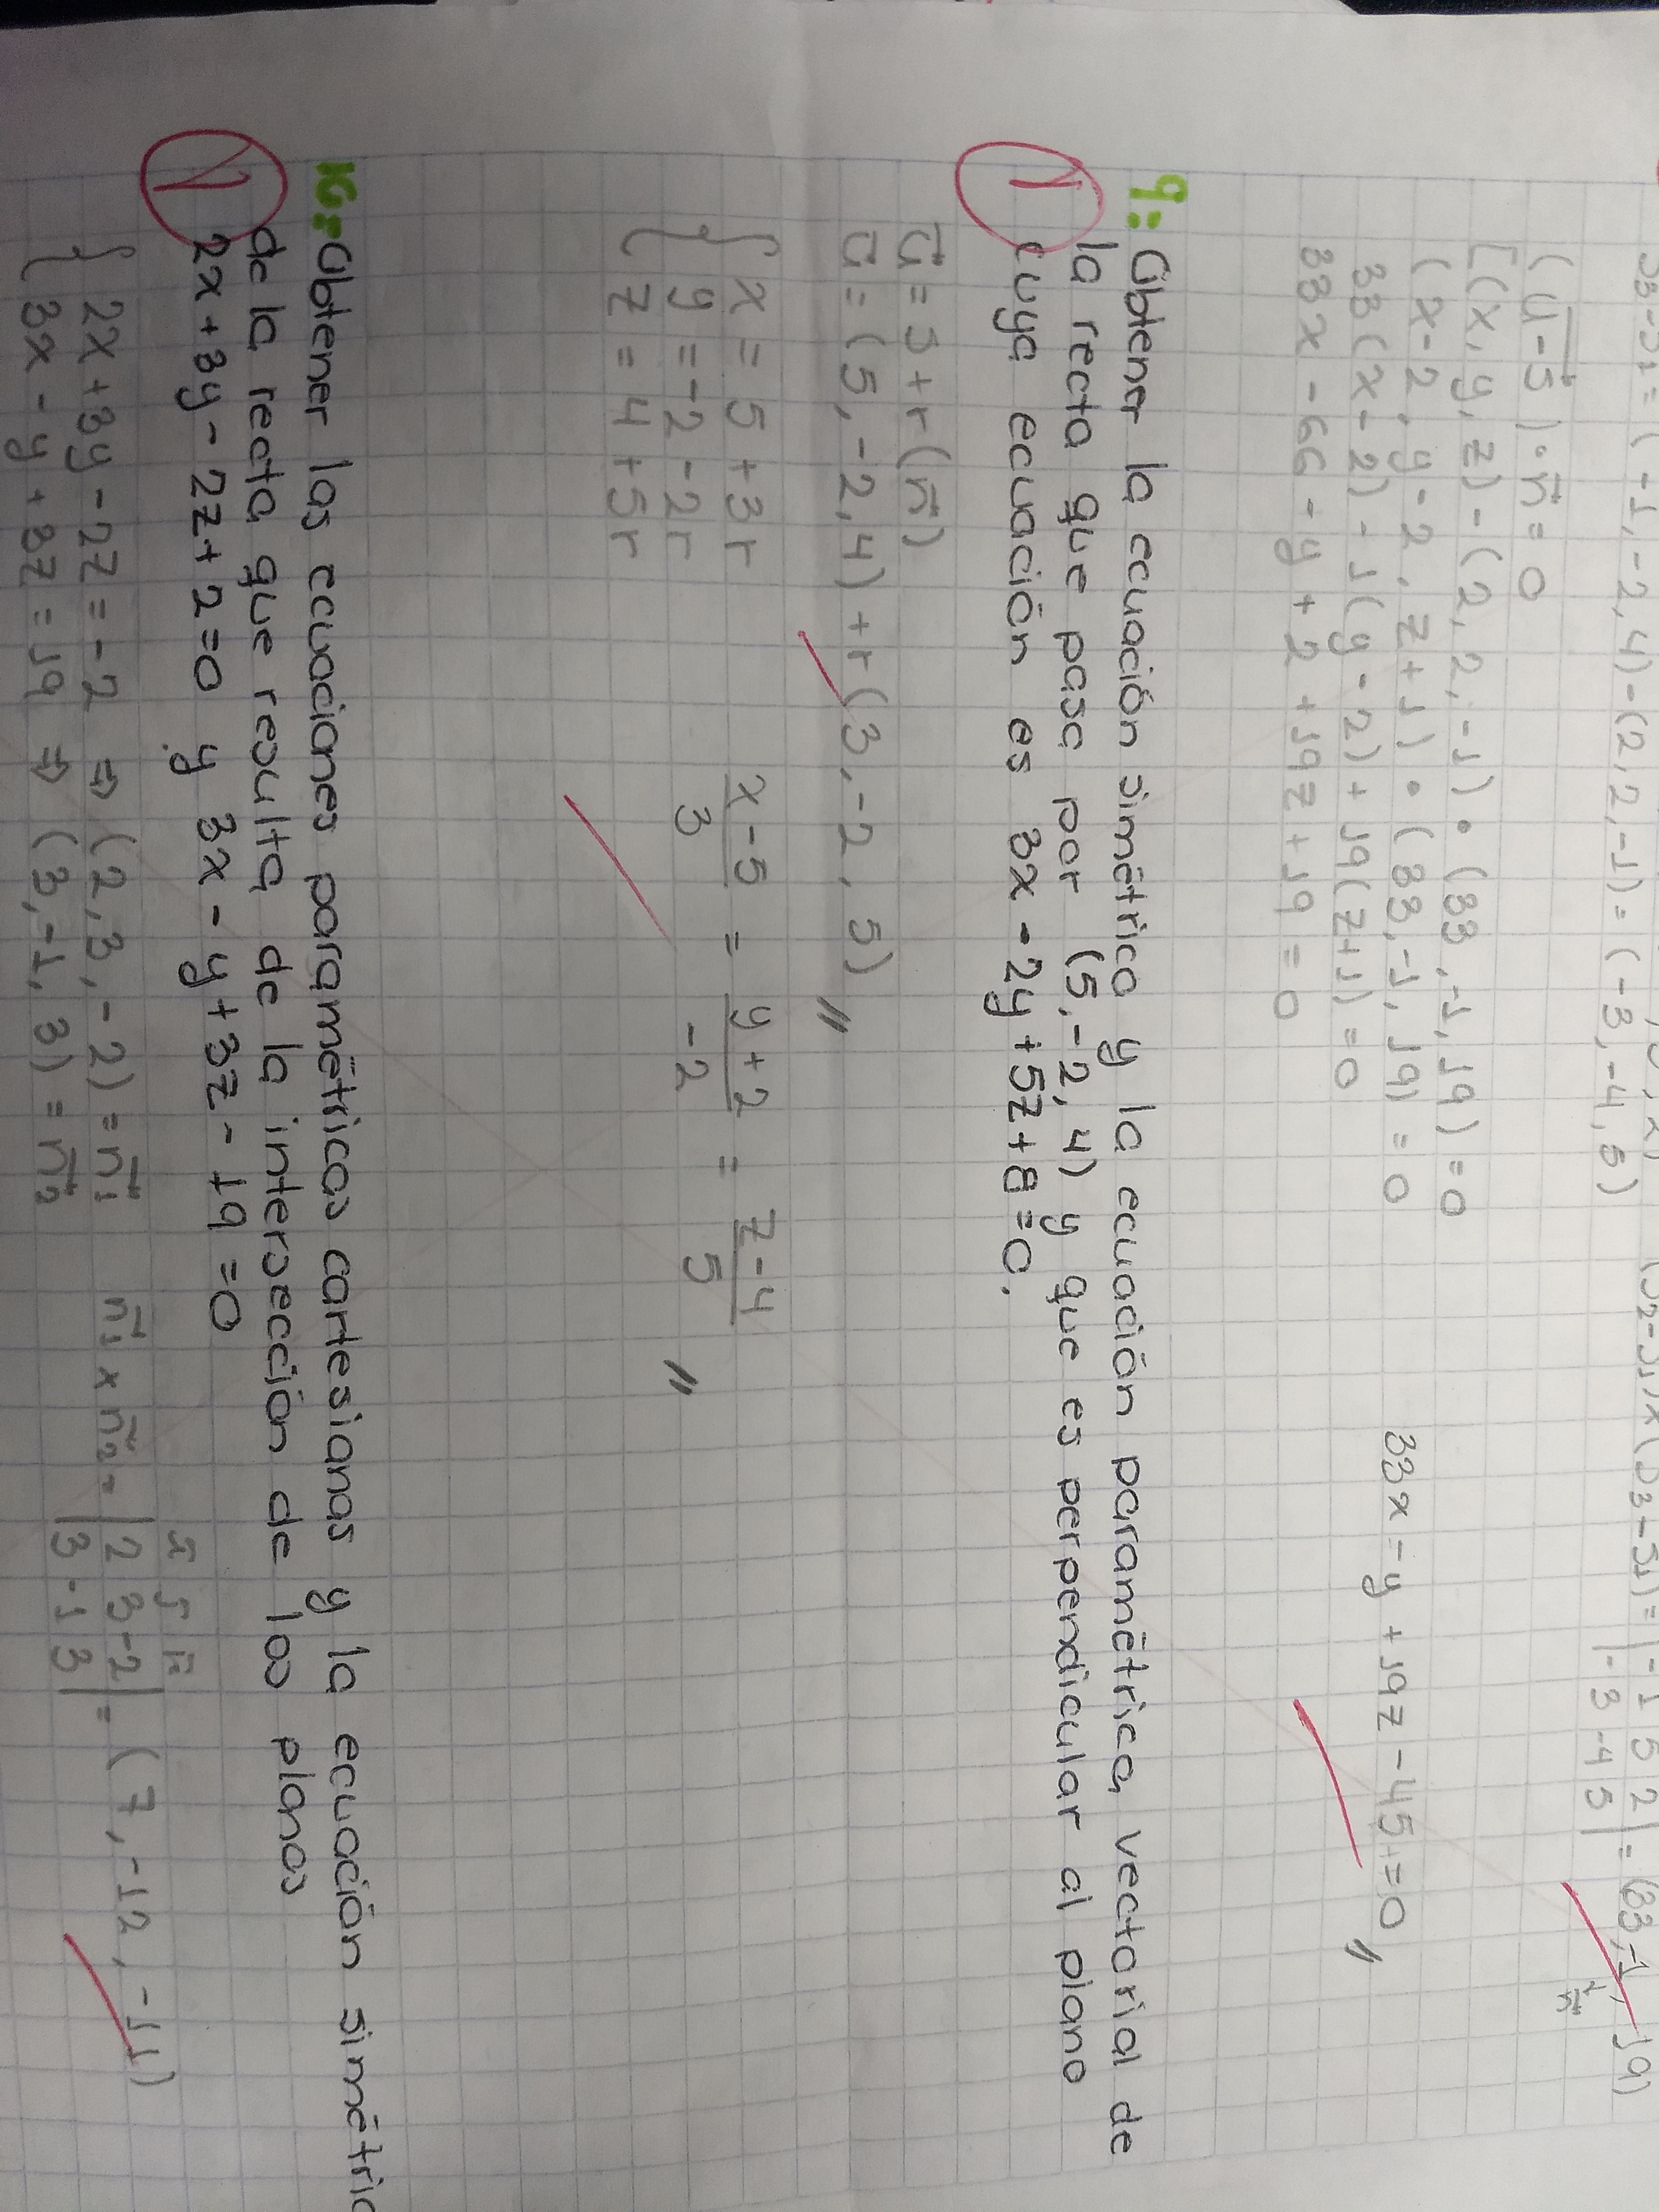 S3-S1 = (-1,-2,4)-(2,2,-1) = (-3,-4,5)
(S2-S1)×(S3-S1) = |-1 5 2| = (33,-1, 19)
|-3 -4 5|
n
(u-s)·n = 0
[(x, y, z) - (2, 2, -1) · (33, -1, 19) = 0
(x-2, y-2, z+1) · (33, -1, 19) = 0
33(x-2) - 1(y-2) + 19(z+1) = 0
33x - 66 - y + 2 + 19z + 19 = 0
33x - y + 19z - 45 = 0 //
9: Obtener la ecuación simétrica y la ecuación paramétrica vectorial de
la recta que pasa por (5,-2,4) y que es perpendicular al plano
cuya ecuación es 3x - 2y + 5z + 8 = 0.
1
u = s + r(n)
u = (5,-2,4) + r(3,-2, 5) //
x = 5 + 3r
y = -2 - 2r
z = 4 + 5r
x-5/3 = y+2/-2 = z-4/5 //
10: Obtener las ecuaciones paramétricas cartesianas y la ecuación simétric
de la recta que resulta de la intersección de los planos
2x + 3y - 2z + 2 = 0 y 3x - y + 3z - 19 = 0
1
2x + 3y - 2z = -2 ⇒ (2, 3, -2) = n1
3x - y + 3z = 19 ⇒ (3, -1, 3) = n2
i j k
n1 × n2 = |2 3 -2| = (7, -12, -11)
|3 -1 3|